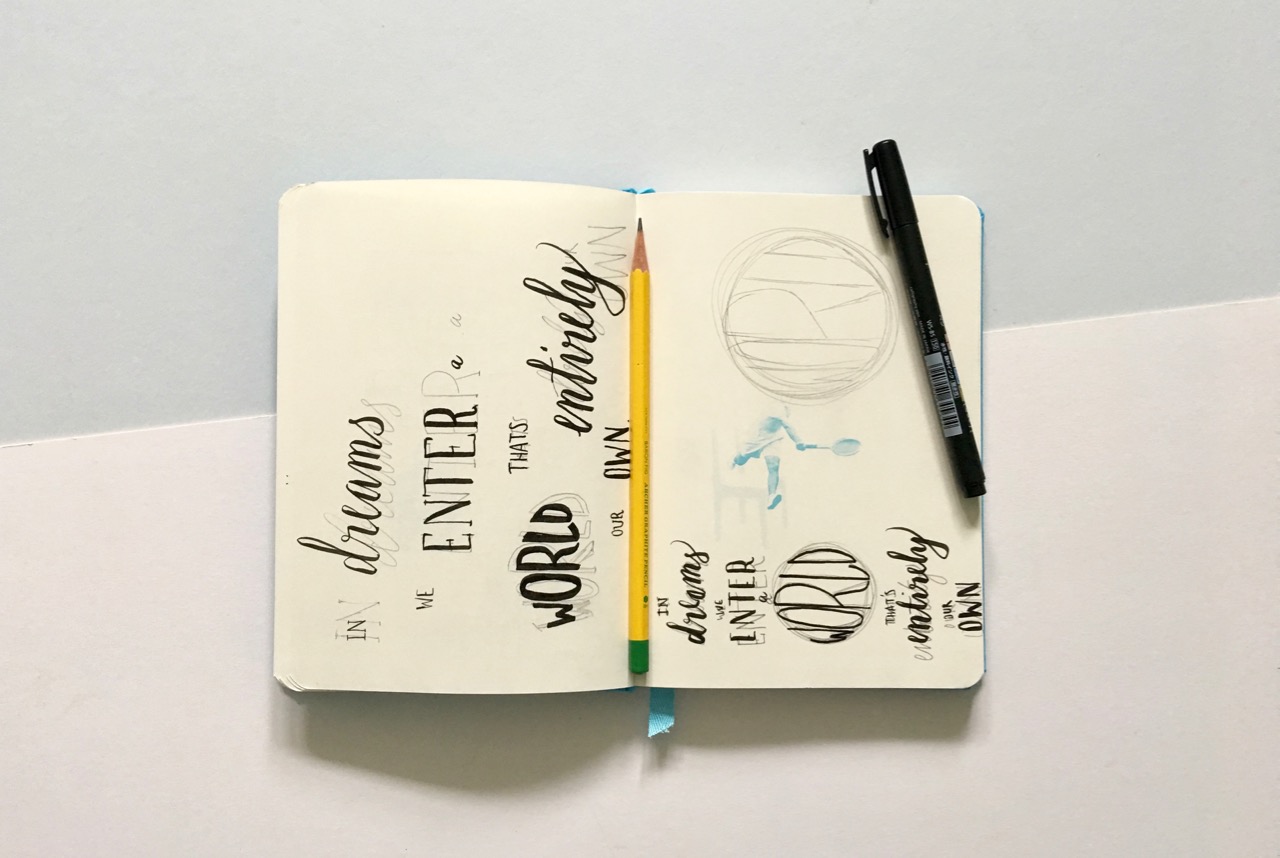 IN dreams
WE ENTER a a
WORLD THAT'S entirely
OUR OWN.
IN
dreams
WE
ENTER
a
WORLD
THAT'S
entirely
OUR
OWN